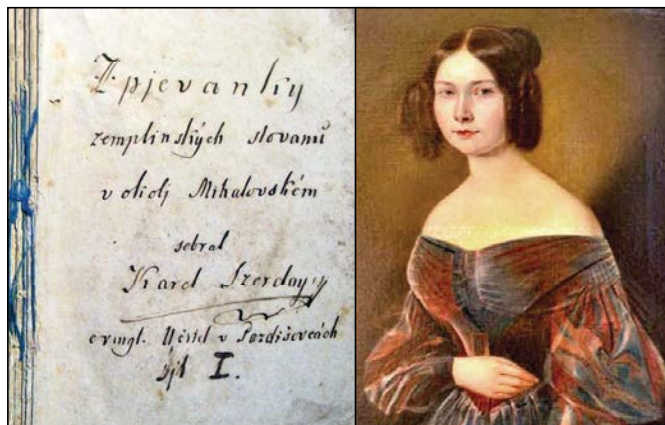 Zpjevanky
zemplinských slovanů
v okolj Mihalovském
sebral
Karel Szerday
evangl. Učitel v Pozdišovcách
I.